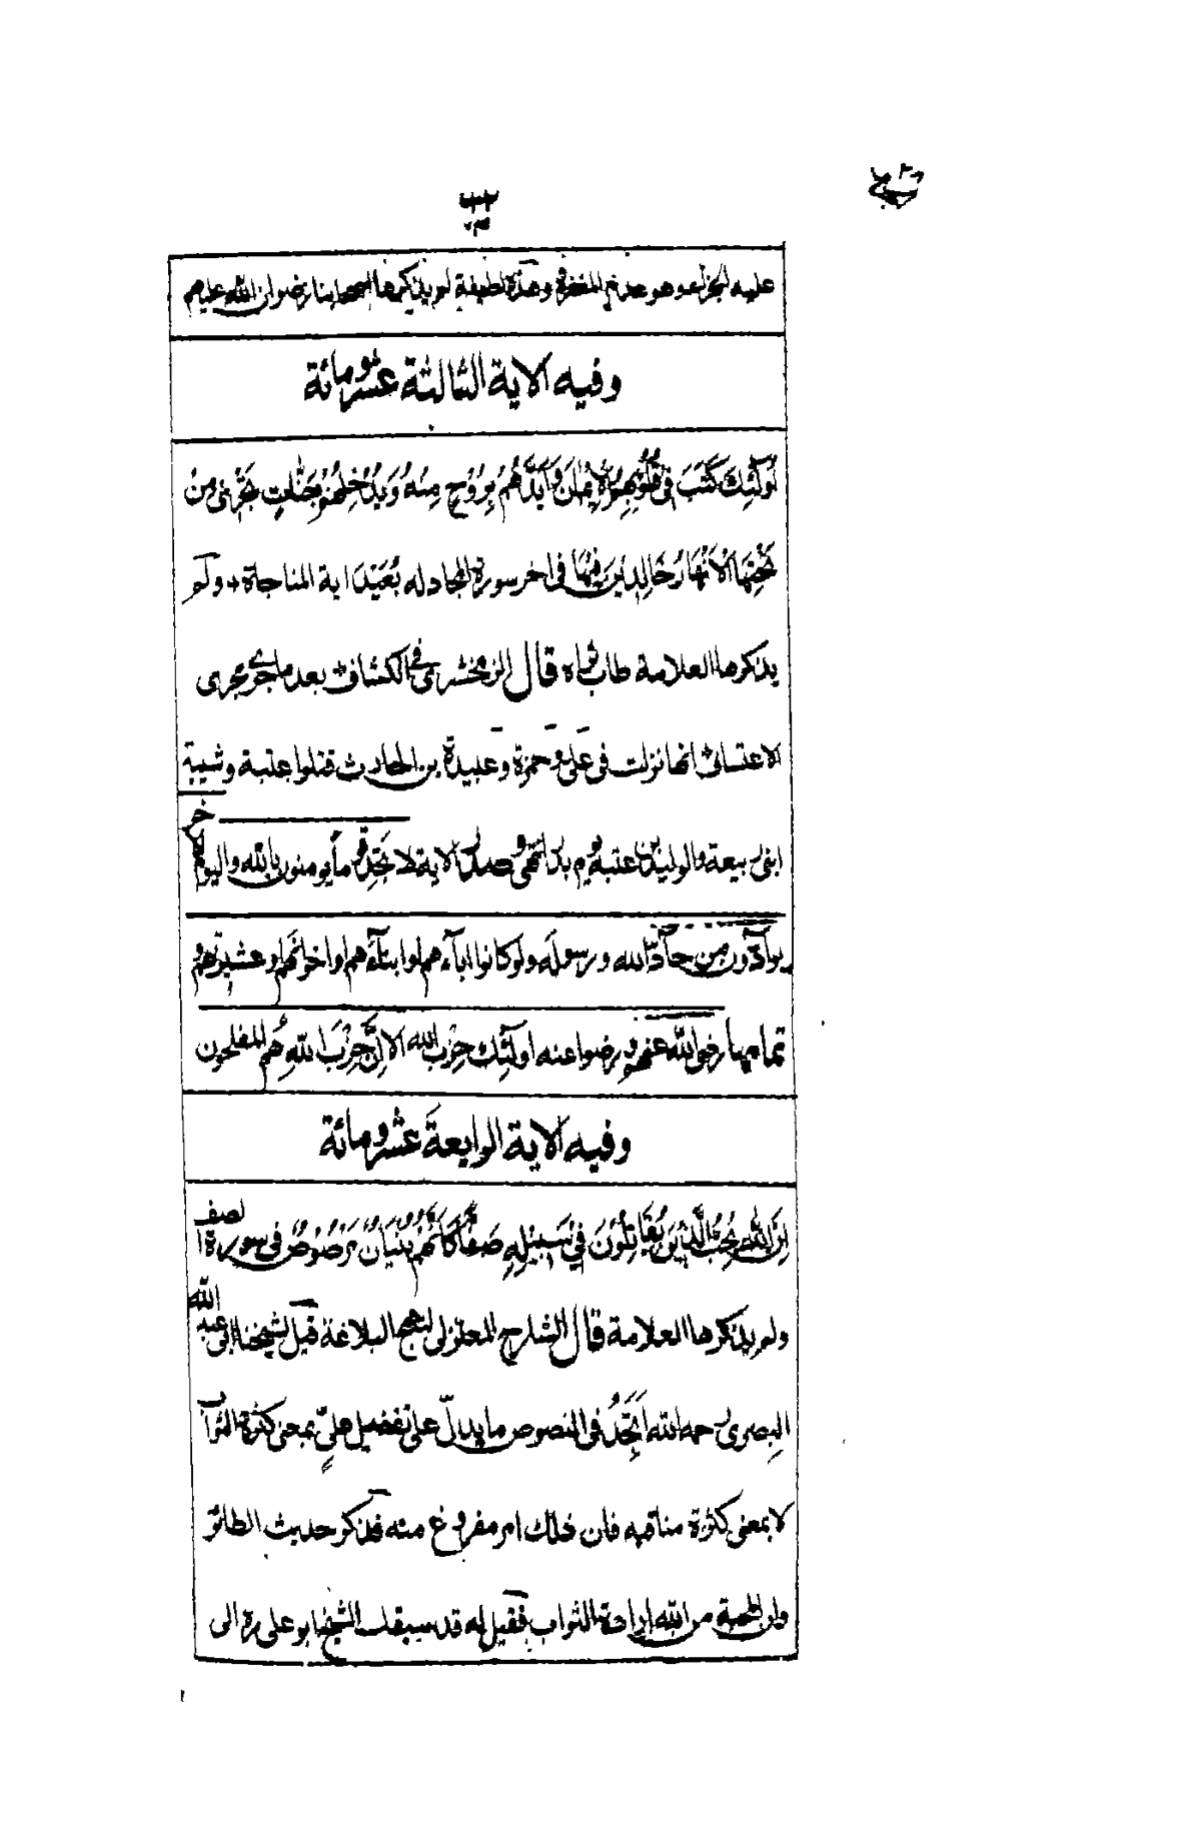 عليه الجزاء وهو عدم المغفرة وهذه لطيفة لم يذكرها اصحابنا رضوان الله عليهم
وفيه الاية الثالثة عشر ومائة
اُولٰٓئِكَ كَتَبَ فِي قُلُوبِهِمُ الْاِيْمَانَ وَاَيَّدَهُمْ بِرُوْحٍ مِنْهُ وَيُدْخِلُهُمْ جَنّٰتٍ تَجْرِيْ مِنْ
تَحْتِهَا الْاَنْهَارُ خَالِدِيْنَ فِيْهَا في اخر سورة المجادله بُعَيْدَ اية المناجاة ولم
يذكرها العلامة طاب ثراه قال الزمخشري في الكشاف بعد ما جرى مجرى
الاعتساف انها نزلت في علي وحمزة وعبيدة بن الحارث قتلوا عتبة وشيبة
ابني ربيعة والوليد بن عتبة يوم بدر انتهى وصدر الاية لا تجد قوما يومنون بالله واليوم الاخر
يوآدّون من حآدّ الله ورسوله ولو كانوا ابآءهم او ابنآءهم او اخوانهم او عشيرتهم و
تمامها رضي الله عنهم ورضوا عنه اولٰٓئِك حِزْب الله الا اِنَّ حِزْبَ اللّٰهِ هُم المفلحون
وفيه الاية الرابعة عشر ومائة
اِنَّ اللّٰهَ يُحِبُّ الَّذِيْنَ يُقَاتِلُوْنَ فِيْ سَبِيْلِهِ صَفًّا كَاَنَّهُمْ بُنْيَانٌ مَرْصُوْصٌ في سورة الصف
ولم يذكرها العلامة قال الشارح المعتزلي لنهج البلاغة قيل لشيخنا ابي عبد الله
البصري رحمه الله اَتَجِدُ في النصوص ما يدلّ على تفضيل عليٍّ بمعنى كثرة الثواب
لا بمعنى كثرة مناقبه فان ذلك امر مفروغ منه فذكر حديث الطائر
وان المحبة من الله ارادة الثواب فقيل له قد سبقك الشيخ ابو علي ره الى